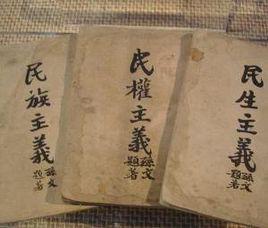 民族主義
孫文著題
民權主義
孫文著題
民生主義
孫文著題